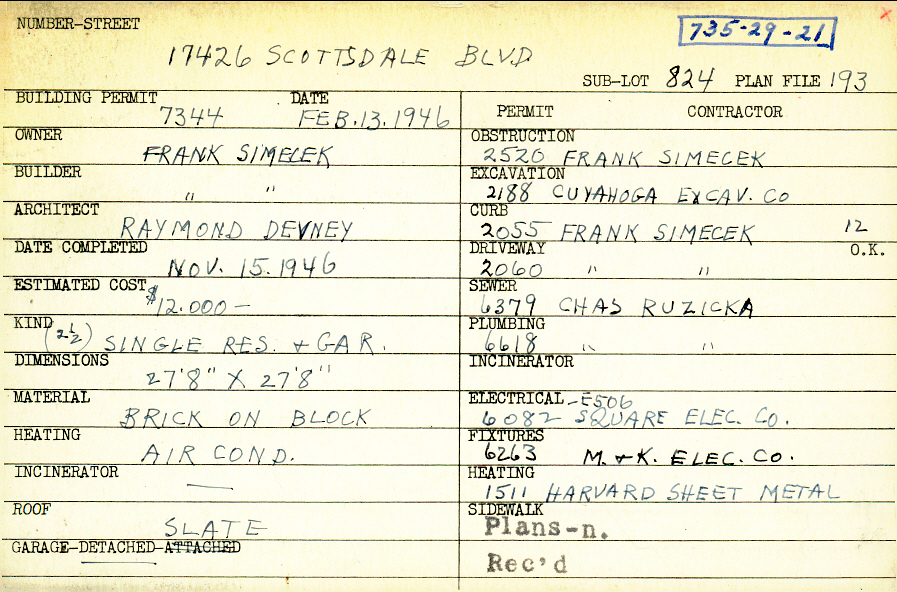 NUMBER-STREET
735-29-21
17426 SCOTTSDALE BLVD
SUB-LOT 824 PLAN FILE 193
BUILDING PERMIT DATE
7344 FEB.13.1946
PERMIT CONTRACTOR
OWNER
FRANK SIMECEK
OBSTRUCTION
2520 FRANK SIMECEK
BUILDER
" "
EXCAVATION
2188 CUYAHOGA EXCAV. CO
ARCHITECT
RAYMOND DEVNEY
CURB
2055 FRANK SIMECEK 12
DATE COMPLETED
NOV. 15. 1946
DRIVEWAY O.K.
2060 " "
ESTIMATED COST
$12.000 —
SEWER
6379 CHAS RUZICKA
KIND
(2½) SINGLE RES. + GAR.
PLUMBING
6618 " "
DIMENSIONS
27'8" X 27'8"
INCINERATOR
MATERIAL
BRICK ON BLOCK
ELECTRICAL -E506
6082 SQUARE ELEC. CO.
HEATING
AIR COND.
FIXTURES
6263 M. + K. ELEC. CO.
INCINERATOR
—
HEATING
1511 HARVARD SHEET METAL
ROOF
SLATE
SIDEWALK
Plans-n.
GARAGE-DETACHED-ATTACHED
Rec'd